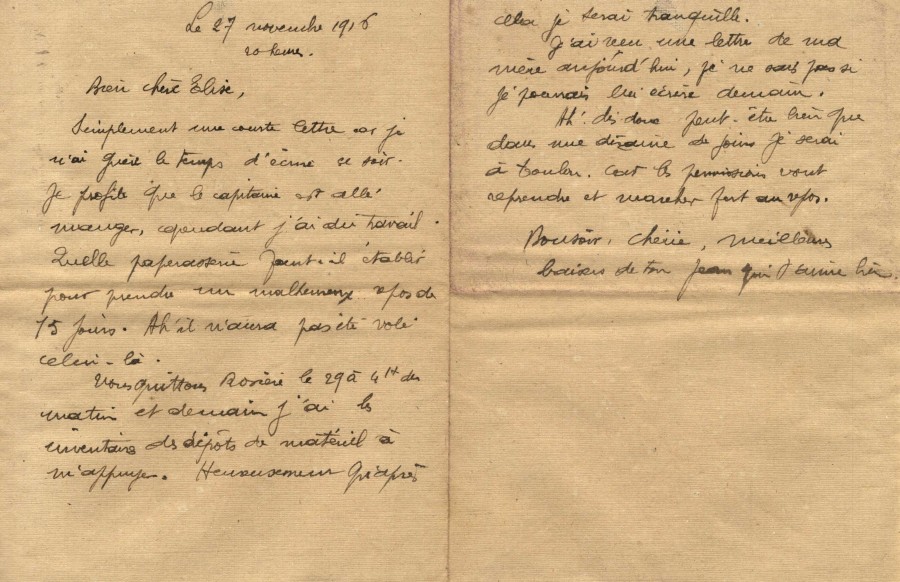 Le 27 novembre 1916
20 heures.
Bien chère Elise,
Simplement une courte lettre car je
n'ai guère le temps d'écrire ce soir.
Je profite que le capitaine est allé
manger, cependant j'ai du travail.
Quelle paperasserie faut-il établir
pour prendre un malheureux repos de
15 jours. Ah il n'aura pas été volé
celui-là.
Nous quittons Rosière le 29 à 4h du
matin et demain j'ai les
inventaires des dépôts de matériel à
m'appuyer. Heureusement qu'après
cela je serai tranquille.
J'ai reçu une lettre de ma
mère aujourd'hui, je ne sais pas si
je pourrais lui écrire demain.
Ah! dis donc peut-être bien que
dans une dizaine de jours je serai
à Toulon. Car les permissions vont
reprendre et marcher fort au repos.
Bonsoir, chérie, meilleurs
baisers de ton Jean qui t'aime bien.